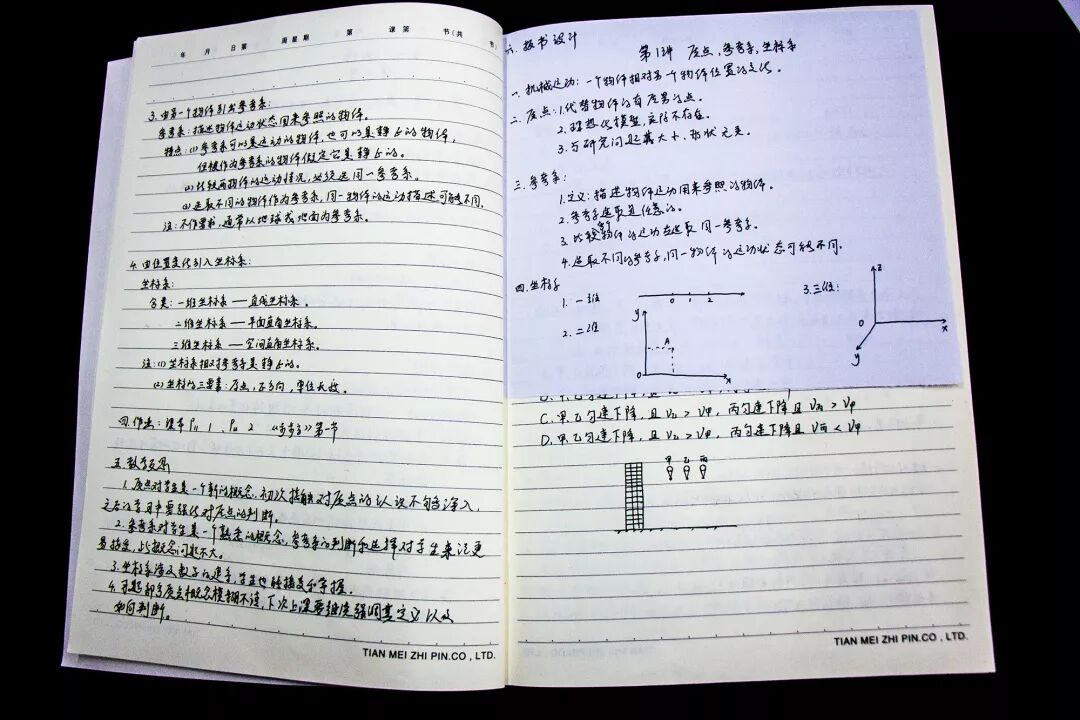 年 月 日第 周星期 第 课第 节(共 节)
3.由第一个物体引出参考系:
参考系:描述物体运动状态用来参照的物体。
特点:(1)参考系可以是运动的物体,也可以是静止的物体,
但被作为参考系的物体假定它是静止的。
(2)比较两物体的运动情况,必须选同一参考系。
(3)选取不同的物体作为参考系,同一物体的运动描述可能不同。
注:不作要求,通常以地球或地面为参考系。
4.由位置变化引入坐标系:
坐标系:
分类:一维坐标系——直线坐标系。
二维坐标系——平面直角坐标系。
三维坐标系——空间直角坐标系。
注:(1)坐标系相对参考系是静止的。
(2)坐标的三要素:原点,正方向,单位长度。
四.作业:课本P11 1、P11 2 《步步高》第一节
五.教学反思
1.质点对学生是一个新的概念,初次接触对质点的认识不够深入,
之后的学习中要强化对质点的判断。
2.参考系对学生是一个熟悉的概念,参考系的判断和选择对学生来说更
易接受,此概念问题不大。
3.坐标系涉及数学的建系,学生也能接受和掌握。
4.可能部分质点概念模糊不清,下次上课要继续强调其定义以及
如何判断。
TIAN MEI ZHI PIN.CO , LTD.
六.板书设计
第1讲 质点,参考系,坐标系
一.机械运动:一个物体相对另一个物体位置的变化。
二.质点:1.代替物体的有质量的点。
2.理想化模型,实际不存在。
3.与研究问题其大小、形状无关。
三.参考系:
1.定义:描述物体运动用来参照的物体。
2.参考系选取是任意的。
3.比较物体的运动应选取同一参考系。
4.选取不同的参考系,同一物体的运动状态可能不同。
四.坐标系
1.一维
0 1 2
2.二维
y
A
0
x
3.三维:
z
0
x
y
C.甲、乙匀速下降,且V乙>V甲,丙匀速下降且V丙>V甲
D.甲、乙匀速下降,且V乙>V甲,丙匀速下降且V丙<V甲
甲 乙 丙
TIAN MEI ZHI PIN.CO , LTD.